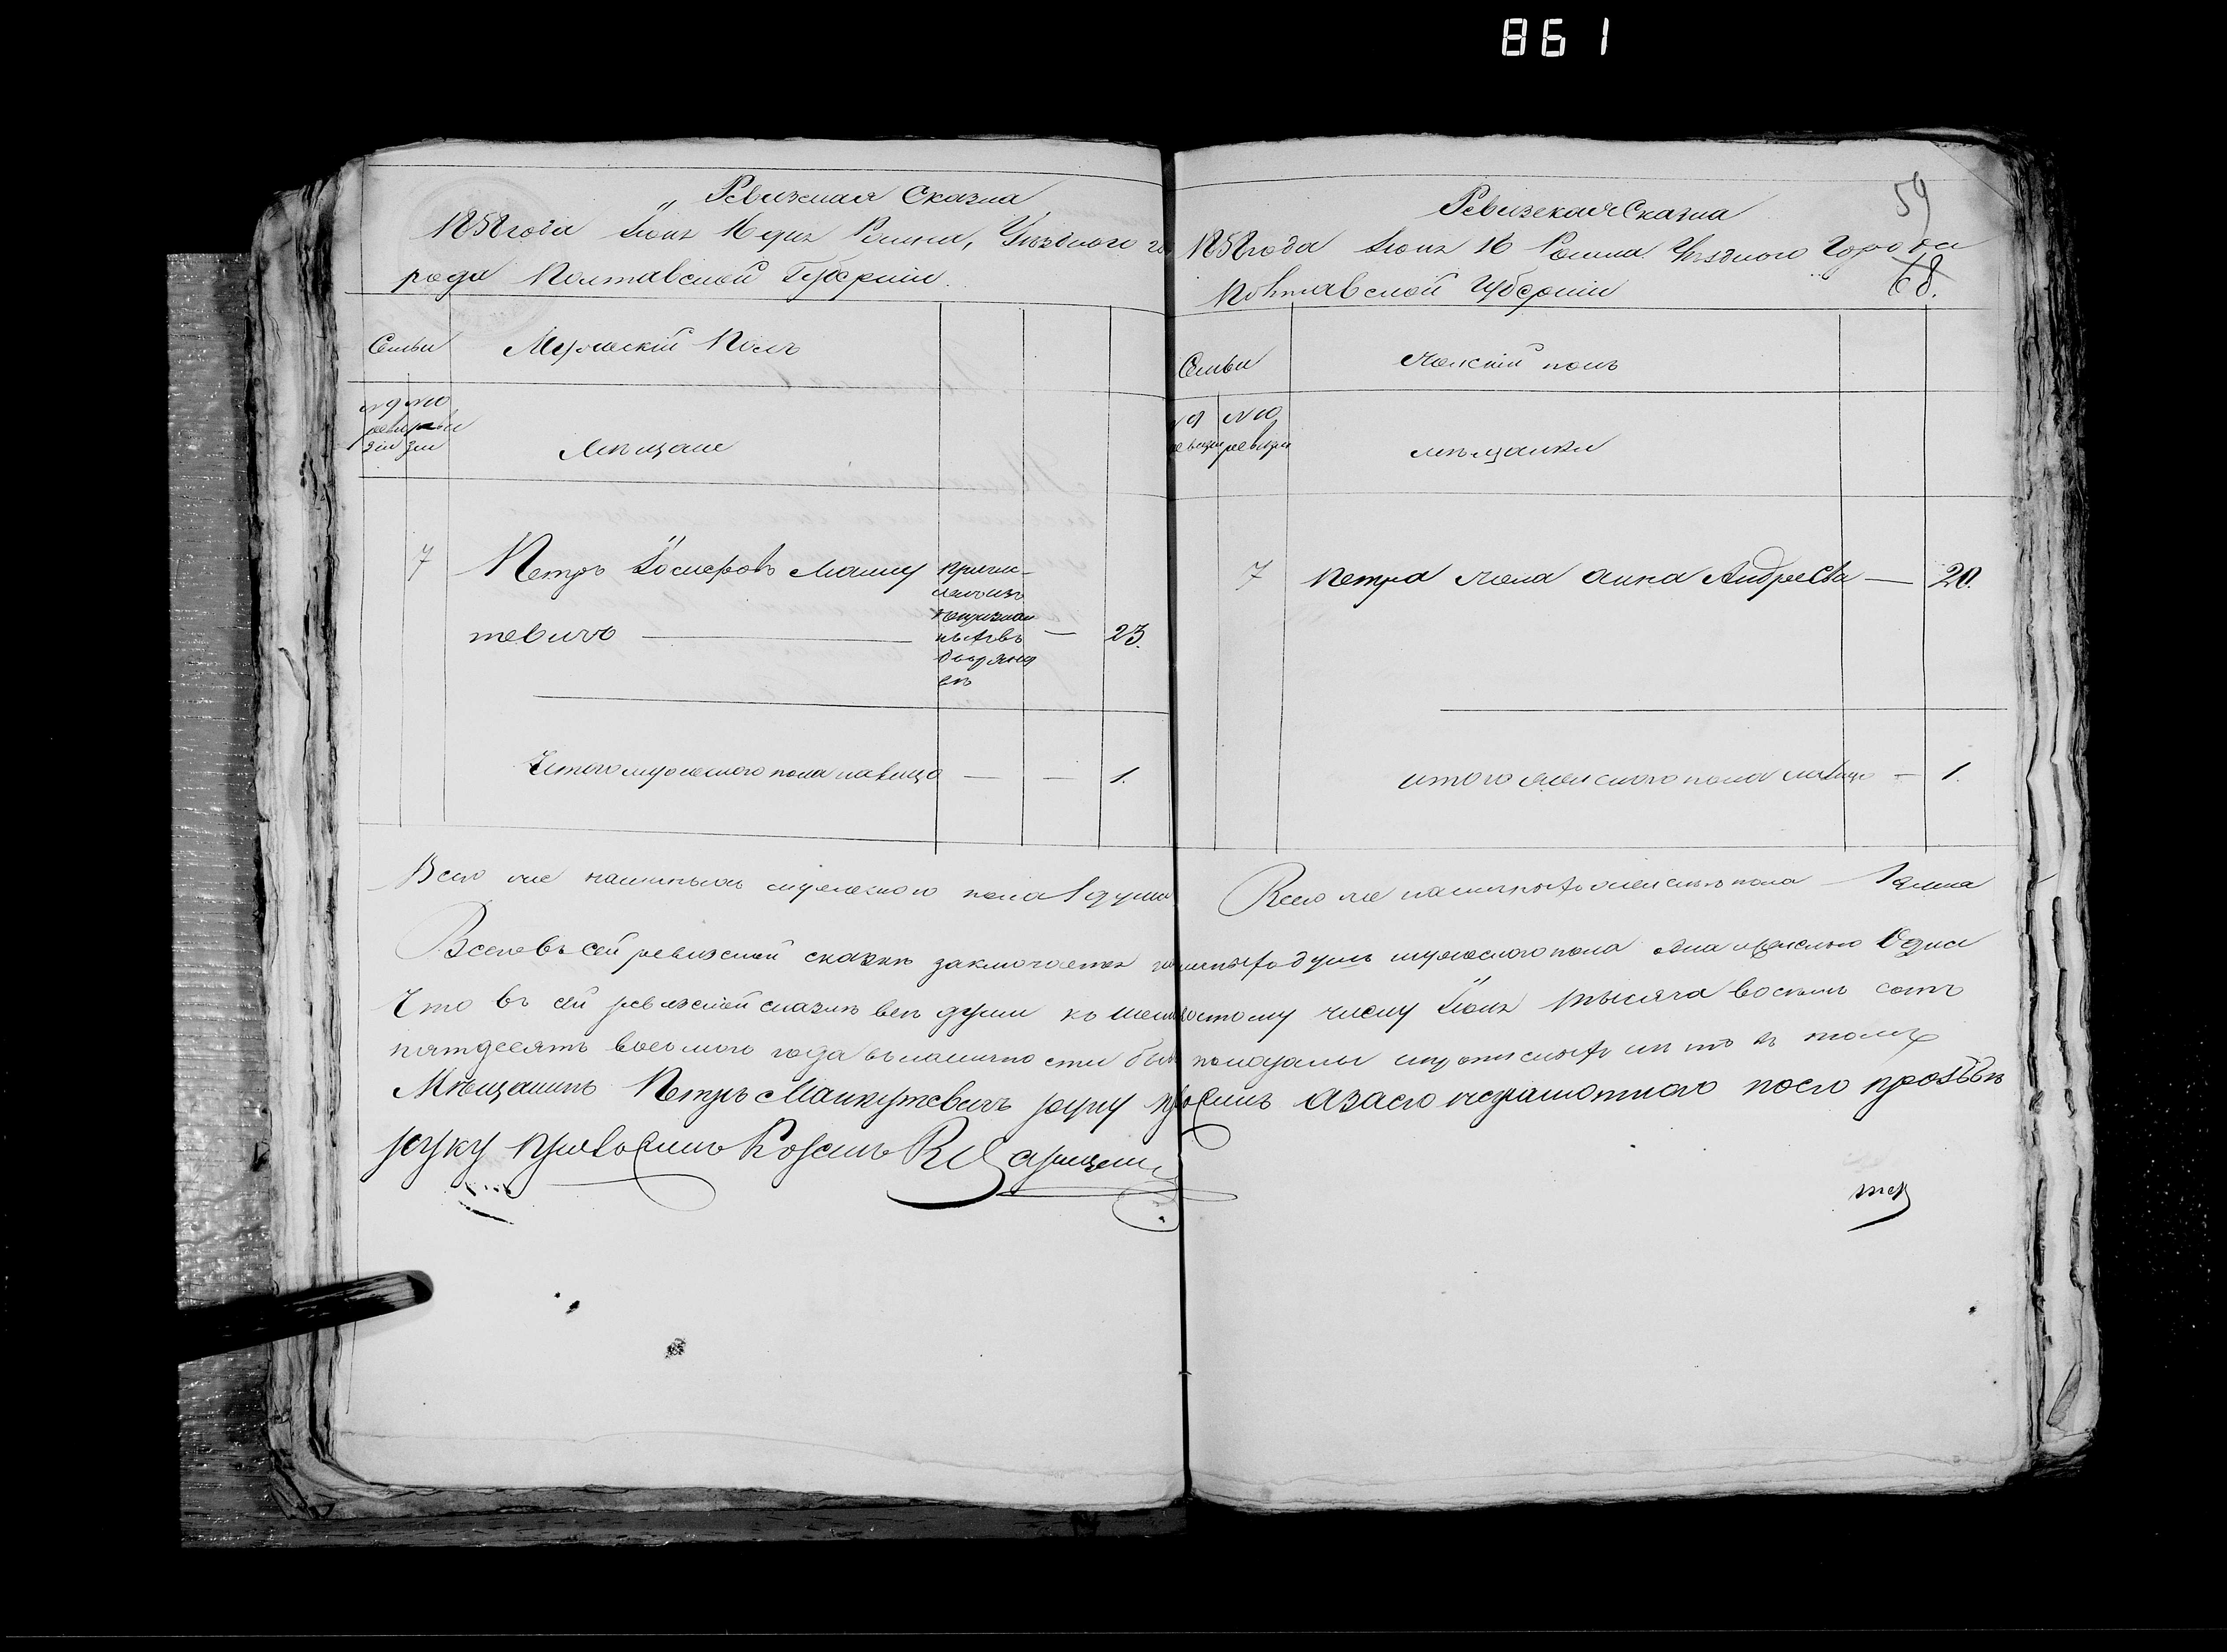 861
Ревизская Сказка
1858 года Іюня 16 дня Ромна, Уѣзднаго го
рода Полтавской Губерніи.
Семьи
Мужескій Полъ
№ 9 ревизіи
№ 10 ревизіи
Мѣщане
7
Петръ Іосифовъ Манку
тевичъ — 23.
причис-
ленъ изъ
дворянъ
Итого мужескаго пола налицо — — 1.
Всего же наличныхъ мужескаго пола 1 душа
59
Ревизская Сказка
1858 года Іюня 16 Ромна Уѣзднаго Города
68.
Полтавской Губерніи
Семьи
Женскій полъ
№ 9 ревизіи
№ 10 ревизіи
мѣщанки
7
Петра жена Анна Андреева — 20.
итого женскаго пола налицо — 1.
Всего же наличныхъ женскаго пола 1
Всего въ сей ревизской сказкѣ заключается наличныхъ душъ мужескаго пола одна женскаго Одна
Что въ сей ревизской сказкѣ всѣ души къ шестому числу Іюня тысяча восемь сотъ
пятдесятъ восьмаго года въ наличности показаны и нѣтъ въ томъ
Мѣщанинъ Петръ Манкутевичъ руку приложилъ а за его неграмотнаго по его прозбѣ
руку приложилъ